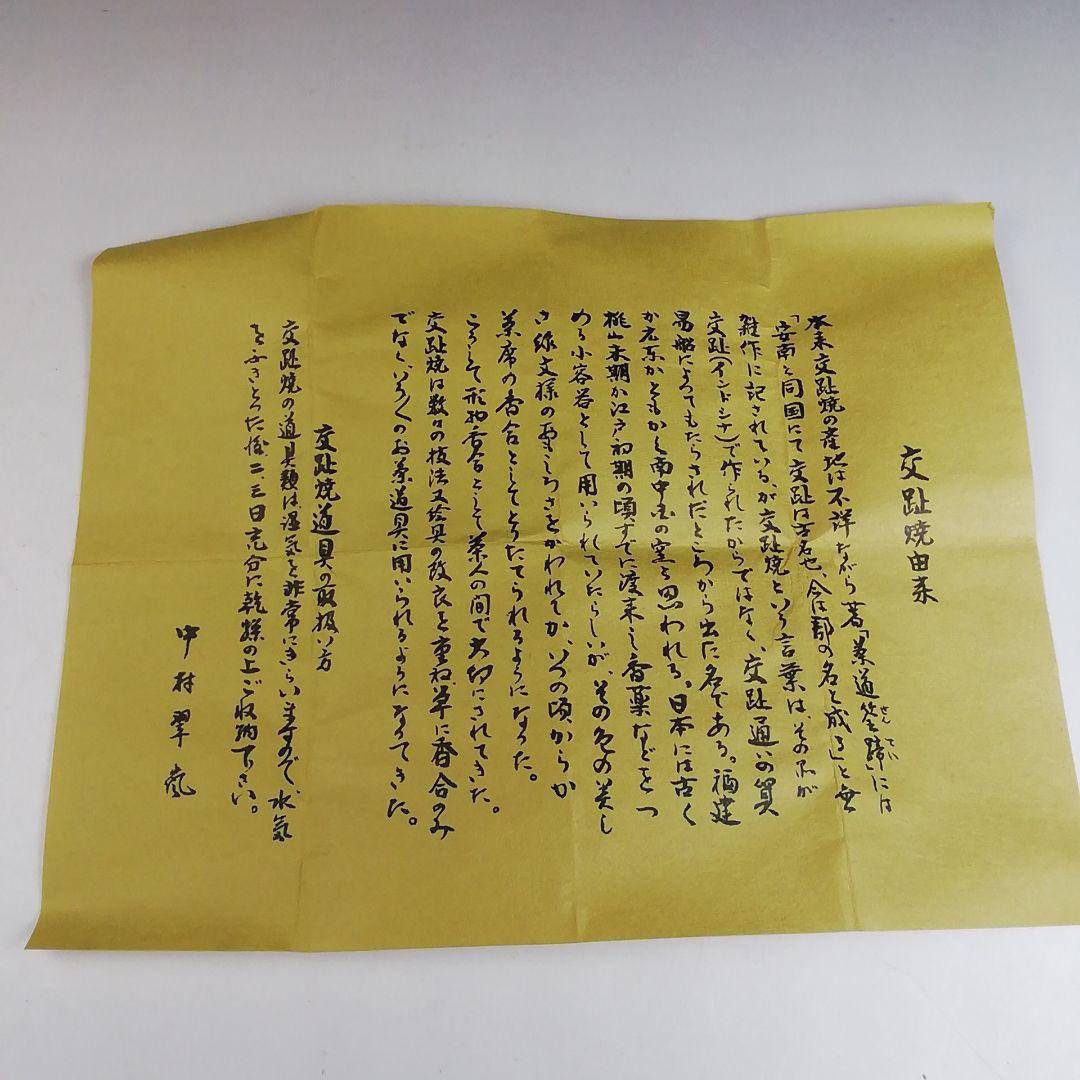 交趾焼由来
本来交趾焼の産地は不詳ながら著「茶道筌蹄」には
さん てい
「安南と同国にて交趾は古名也、今は郡の名と成る」と
雑作に記されている、が交趾焼という言葉は、その品が
交趾(インドシナ)で作られたからではなく、交趾通いの貿
易船によってもたらされたところから出た名である。福建
か広東かともかく南中国の窯と思われる。日本には古く
桃山末期か江戸初期の頃すでに渡来し香薬などをつ
める小容器として用いられていたらしいが、その色の美し
さ線文様のおもしろさをかわれてか、いつの頃からか
茶席の香合としてとりたてられるようになった。
こうして形物香合として茶人の間で大切にされてきた。
交趾焼は数々の技法又絵具の改良を重ね単に香合のみ
でなく、いろ〱のお茶道具に用いられるようになってきた。
交趾焼道具の取扱い方
交趾焼の道具類は湿気を非常にきらいますので、水気
をふきとった後二、三日充分に乾燥の上ご収納下さい。
中村翠嵐